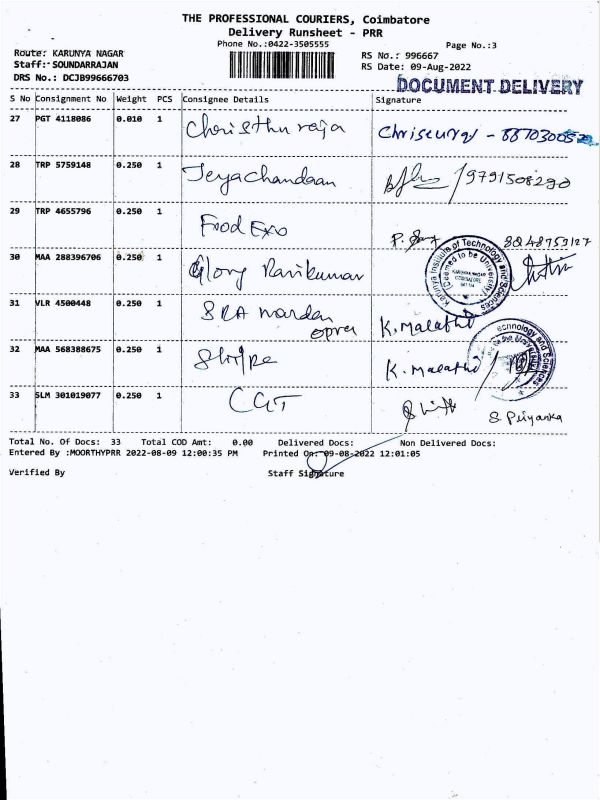 THE PROFESSIONAL COURIERS, Coimbatore
Delivery Runsheet - PRR
Phone No.:0422-3505555
Page No.:3
Route: KARUNYA NAGAR
RS No.: 996667
Staff: SOUNDARRAJAN
RS Date: 09-Aug-2022
DRS No.: DCJB99666703
DOCUMENT DELIVERY
S No Consignment No Weight PCS Consignee Details Signature
27 PGT 4118086 0.010 1 Christhu raja
28 TRP 5759148 0.250 1 Jeyachandran 9791508290
29 TRP 4655796 0.250 1 Food Exo 8048753127
30 MAA 288396706 0.250 1 Glory Ravikumar
Karunya Institute of Technology and Sciences
(Deemed to be University)
KARUNYA NAGAR
COIMBATORE
641 114
31 VLR 4500448 0.250 1 SRA warden K. Malathi
32 MAA 568388675 0.250 1 K. Malathi
33 SLM 301019077 0.250 1 CGT S. Priyanka
Total No. Of Docs: 33 Total COD Amt: 0.00 Delivered Docs: Non Delivered Docs:
Entered By :MOORTHYPRR 2022-08-09 12:00:35 PM Printed On: 09-08-2022 12:01:05
Verified By Staff Signature